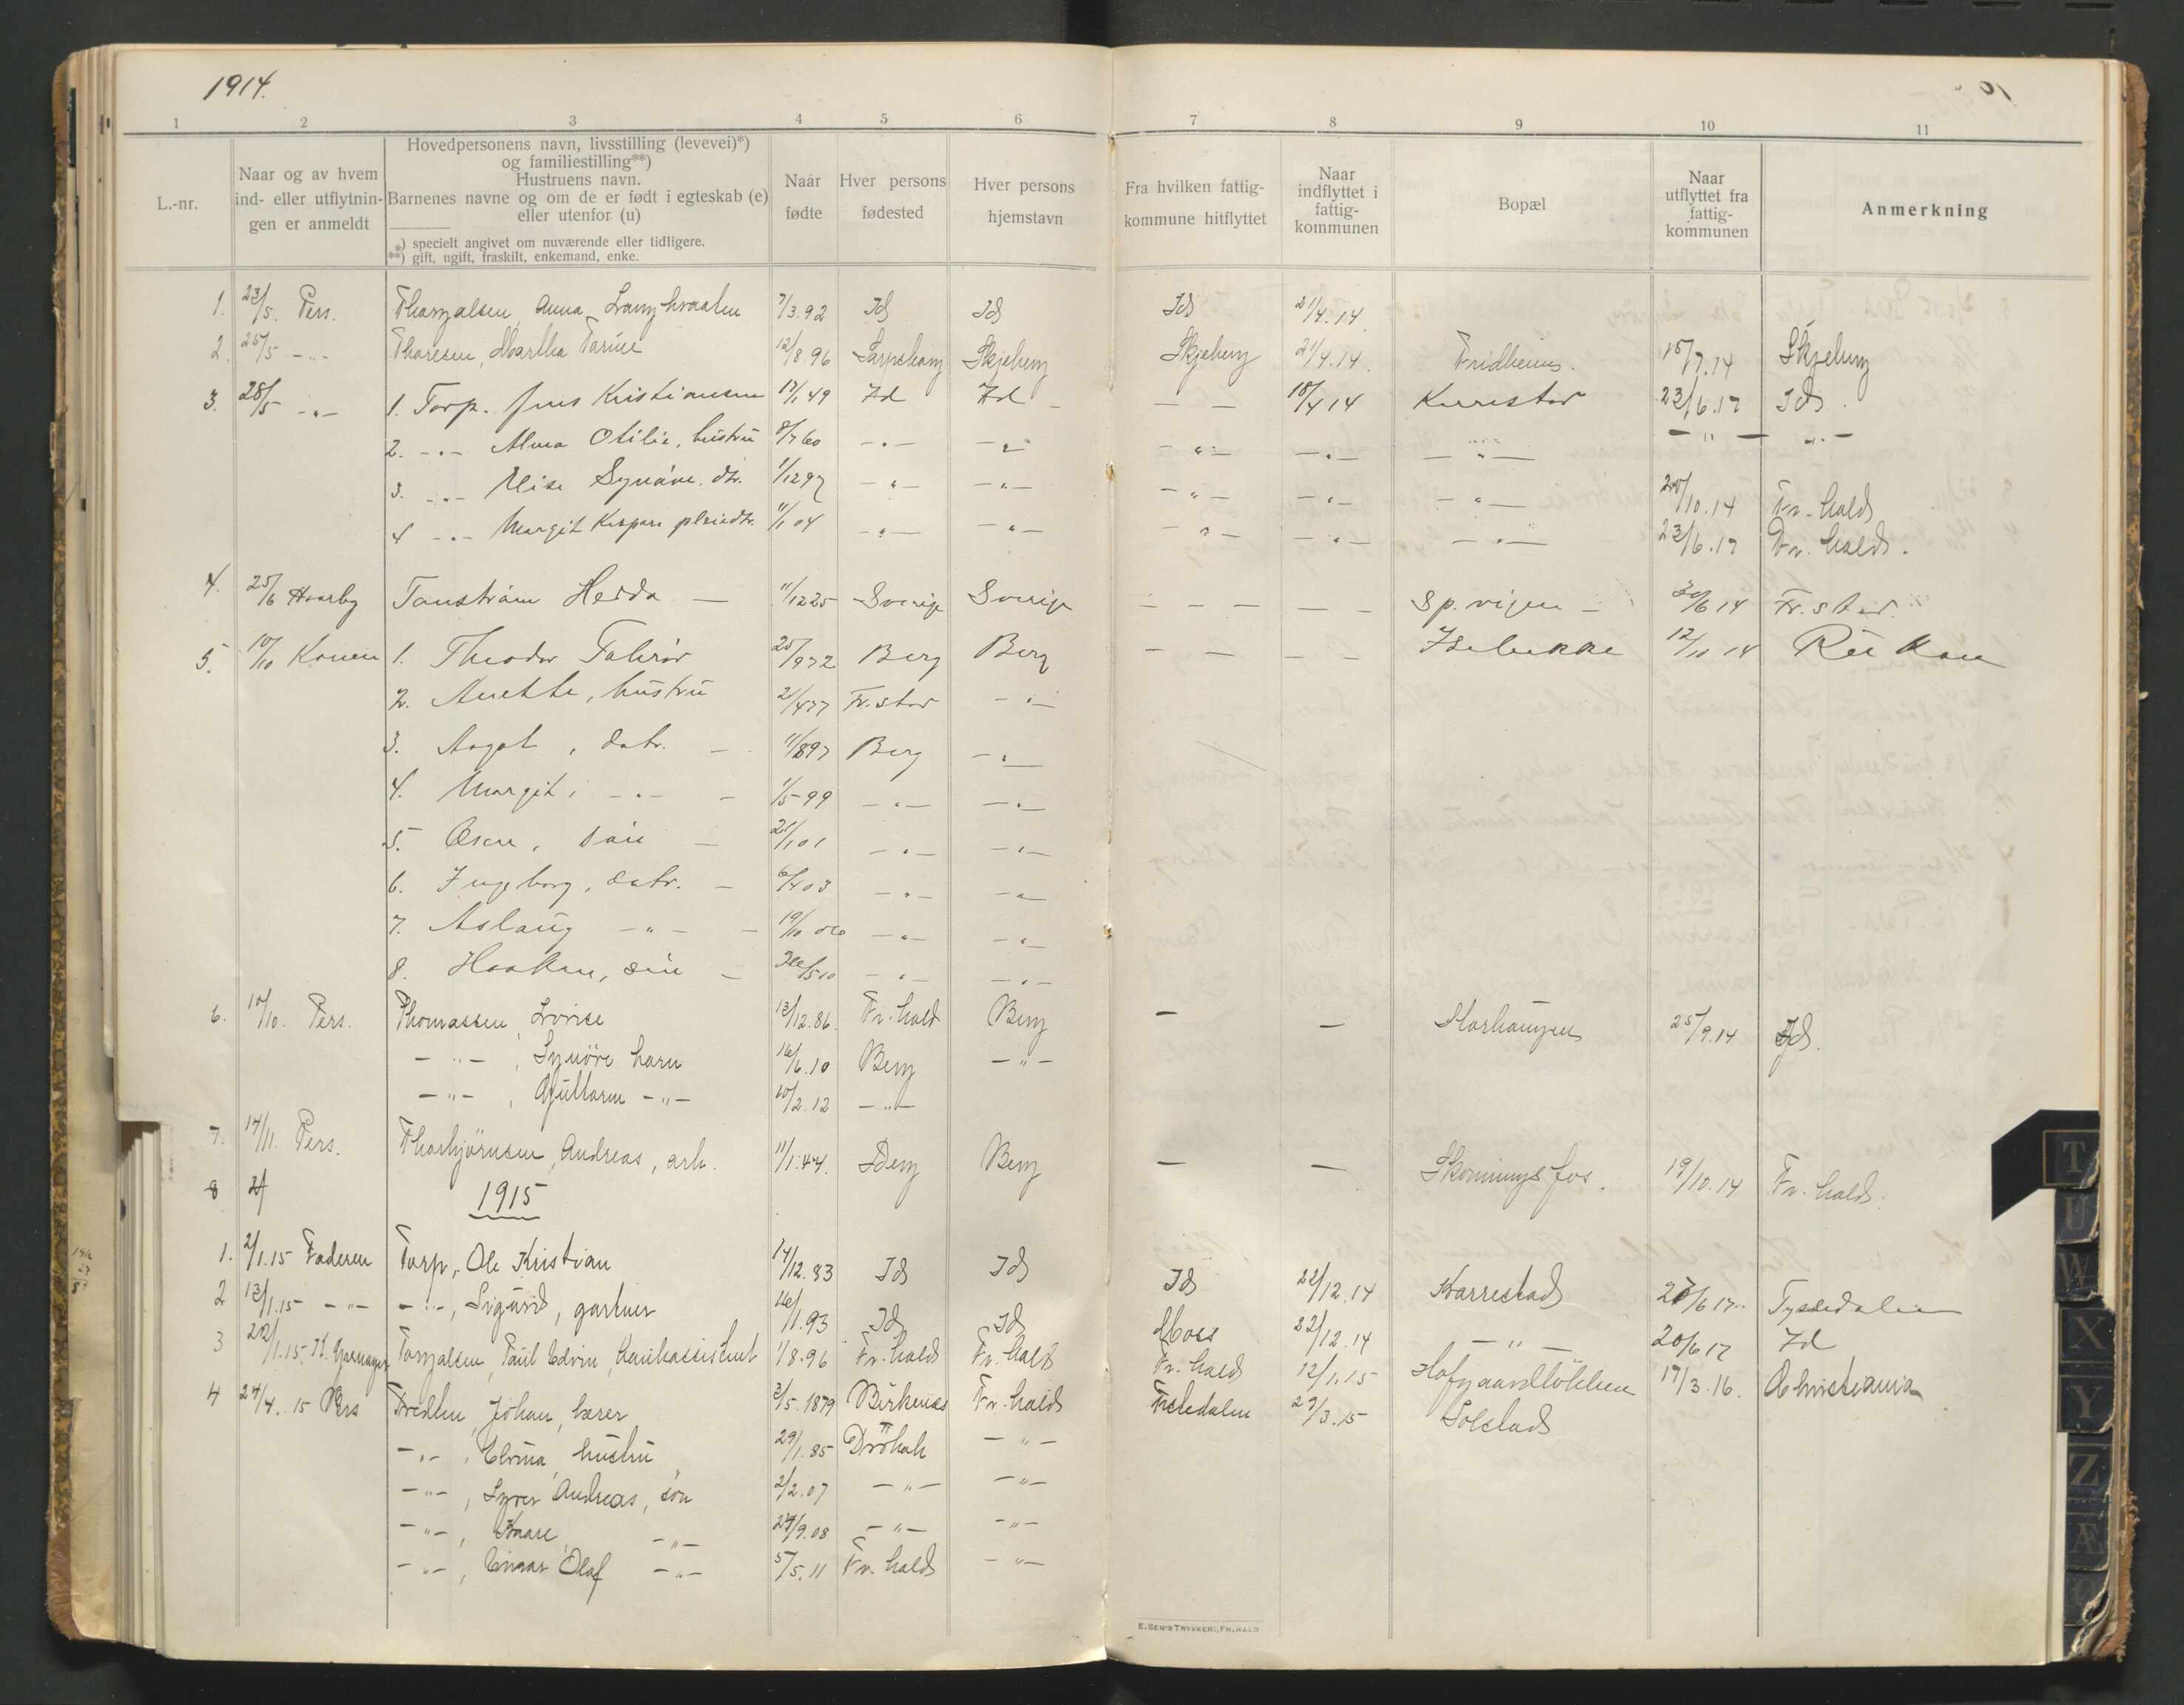 1914.
1 2 3 4 5 6 7 8 9 10 11
L.-nr.
Naar og av hvem
ind- eller utflytnin-
gen er anmeldt
Hovedpersonens navn, livsstilling (levevei)*)
og familiestilling**)
Hustruens navn.
Barnenes navne og om de er født i egteskab (e)
eller utenfor (u)
*) specielt angivet om nuværende eller tidligere.
**) gift, ugift, fraskilt, enkemand, enke.
Naar
fødte
Hver persons
fødested
Hver persons
hjemstavn
Fra hvilken fattig-
kommune hitflyttet
Naar
indflyttet i
fattig-
kommunen
Bopæl
Naar
utflyttet fra
fattig-
kommunen
Anmerkning
1. 23/5. Pers. Anna 7/3.92 Id Id Id 21/4.14
2 25/5 -"- Thoresen, Martha 12/8.96 Sarpsborg Skjeberg Skjeberg 21/4.14. Fridheim. 15/7.14 Skjeberg
3. 28/5 -"- 1. Torp. Jens Kristiansen 17/1 49 Id Id - — — 18/4 14 Karrestad 23/6.17 Id.
2. -"- Alma Otilie, hustru 8/7 60 -"- -"- -"- -"- -"- -"- -"-
3. -"- Synøve. dtr. 1/12 97 -"- -"- -"- -"- -"- 20/10.14 Fr.hald
4 -"- Margit pleiedtr. 11/1 04 -"- -"- -"- -"- -"- 23/6.17 Fr. hald.
4. 25/6 Haarby Tanström Hedda — 11/12 25 Sverige Sverige — — — — — Sp.vigen - 30/6 14 Fr.stad
5. 10/10 Konen 1. Theodor 25/9 72 Berg Berg — — — — Isebakke 12/10 14 Rükan
2. Anette, hustru 21/4 77 Fr.stad -"-
3. Aagot, datr. — 11/8 97 Berg -"-
4. Margit, -"- - 1/5 99 -"- -"-
5. Oscar, sön — 21/1 01 -"- -"-
6. Ingeborg, datr. — 6/4 03 -"- -"-
7. Aslaug -"- - 19/10 06 -"- -"-
8. Haakon, sön — 30/5 10 -"- -"-
6. 10/10. Pers. Thomassen, Lovise 13/12.86. Fr.hald Berg — — Storhaugen 25/9.14 Id.
-"-, Synöve barn 16/6.10 Berg -"-
-"-, Guttorm -"- 10/2.12 -"-
7. 14/11. Pers. Thorbjörnsen, Andreas, arb. 11/1.44. Berg Berg — — Skonningsfos. 19/10.14 Fr.hald.
8
1915
1. 2/1.15 Faderen Torp, Ole Kristian 14/12.83 Id Id Id 22/12.14 Karrestad 20/6 17. Tyssedalen
2 13/1.15 -"- -"-, Sigurd, gartner 16/1.93 Id Id Moss 22/12.14 -"- 20/6 17 Id
3 22/1.15. Torgalsen, Paul Edvin, Bankassistent 1/8.96 Fr.hald Fr.hald Fr.hald 12/1.15 Hofgaardlökken 17/3.16. Christiania
4 24/4. 15 Pers Johan, lærer 3/5.1879 Birkenes Fr.hald 29/3.15 Solstad
-"-, Elvina, hustru 29/1.85 Dröbak -"-
-"-, Syver Andreas, sön 2/2.07 -"- -"-
-"-, Kaare, -"- 24/9.08 -"- -"-
-"-, Einar Olaf -"- 5/5.11 Fr.hald -"-
E. SEM'S TRYKKERI, FR.HALD
T
U
W
X
Y
Z
Æ